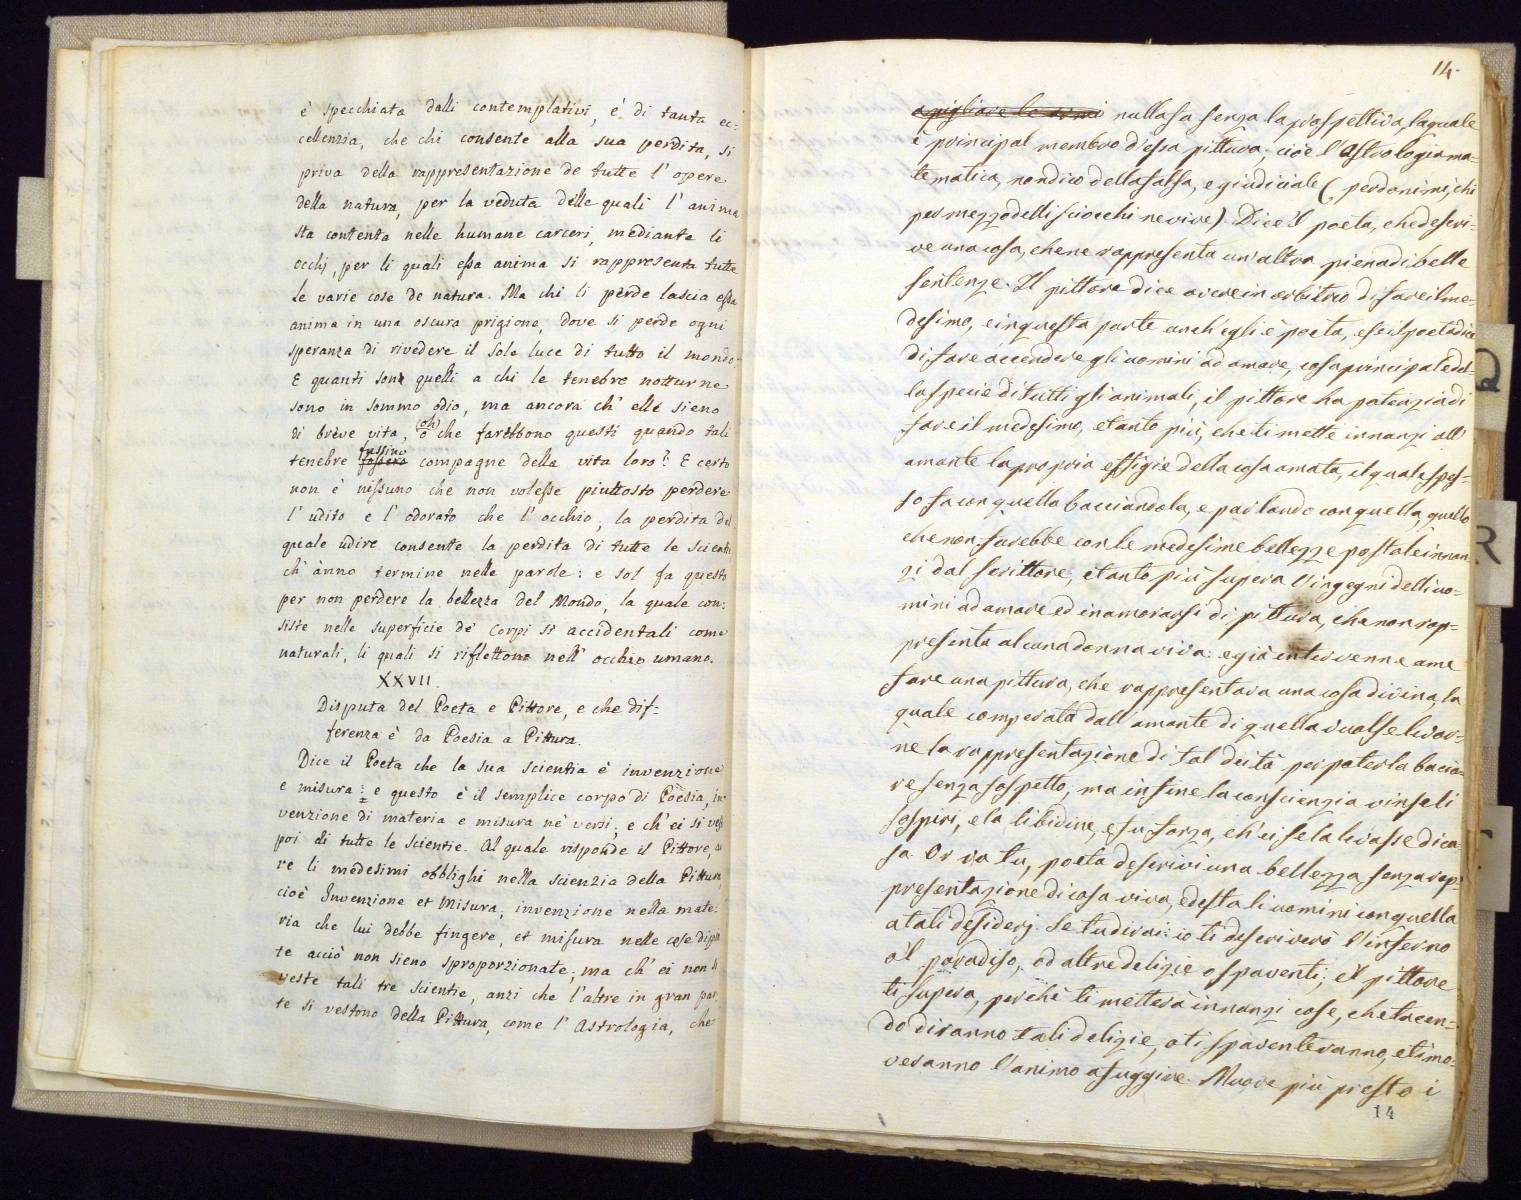 è specchiata dalli contemplativi, è di tanta ec=
cellenzia, che chi consente alla sua perdita, si
priva della rappresentazione de tutte l'opere
della natura, per la veduta delle quali l'anima
sta contenta nelle humane carceri, mediante li
occhj, per li quali essa anima si rappresenta tutte
le varie cose de natura. Ma chi li perde lascia essa
anima in una oscura prigione, dove si perde ogni
speranza di rivedere il Sole luce di tutto il mondo.
E quanti sono quelli a chi le tenebre notturne
sono in sommo odio, ma ancora ch'elle sieno
di brève vita, (oh) ò che farebbono questi quando tali
tenebre fossero fussino compagne della vita loro? E certo
non è nissuno che non volesse piuttosto perdere
l'udito e l'odorato che l'occhio, la perdita del
quale udire consente la perdita di tutte le scienti
ch'ànno termine nelle parole: e sol fa questo
per non perdere la bellezza del Mondo, la quale con:
siste nelle superficie de' Corpi sì accidentali come
naturali, li quali si riflettono nell'occhio umano.
XXVII.
Disputa del Poeta e Pittore, e che dif=
ferenza è da Poesia a Pittura.
Dice il Poeta che la sua scientia è invenzione
e misura: e questo è il semplice corpo di Poesia, in
venzione di materia e misura nè versi; e ch'ei si veste
poi di tutte le Scientie. Al quale risponde il Pittore, a
re li medesimi obblighi nella scienzia della Pittura,
cioè Invenzione et Misura, invenzione nella mate:
ria che lui debbe fingere, et misura nelle cose dipin
te acciò non sieno sproporzionate; ma ch'ei non si
veste tali tre Scientie, anzi che l'altre in gran par
te si vestono della Pittura, come l'Astrologia, che
14.
a pigliare le armi nulla fa senza la prospettiva, la quale
è principal membro d'essa pittura; cioè l'Astrologia ma=
tematica, non dico della falsa, e giudiciale (perdonimi, chi
per mezzo delli sciocchi ne vive). Dice il poeta, che descri=
ve una cosa, che ne rappresenta un'altra piena di belle
sentenze. Il pittore dice avere in arbitrio di fare il me=
desimo, e in questa parte anch'egli è poeta, e se il poeta dice
di fare accendere gli uomini ad amare, cosa principale del=
la specie di tutti gli animali, il pittore ha potenzia di
fare il medesimo, e tanto più, che ti mette innanzi all'
amante la propria effigie della cosa amata, il quale spes=
so fa con quella bacciandola, e parlando con quella, quello
che non farebbe con le medesime bellezze postale innan
zi dal scrittore, e tanto più supera l'ingegni delli uo=
mini ad amare ed inamorarsi di pittura, che non rap=
presenta alcuna donna viva: e già intervenne a me
fare una pittura, che rappresentava una cosa divina, la
quale comperata dall'amante di quella volse levar=
ne la rappresentazione di tal deità per poterla bacia=
re senza sospetto; ma infine la conscienzia vinse li
sospiri, e la libidine, e fu forza, ch'ei se la levasse di ca=
sa. Or va tu, poeta descrivi una bellezza senza rap=
presentazione di cosa viva, e desta li uomini con quella
a tali desiderj. Se tu dirai: io ti descriverò l'inferno
o'l paradiso, od altre delizie o spaventi; el pittore
ti supera, perchè ti metterà innanzi cose, che tacen=
do diranno tali delizie, o ti spaventeranno, e ti mo=
veranno l'animo a fuggire. Muove più presto i
14